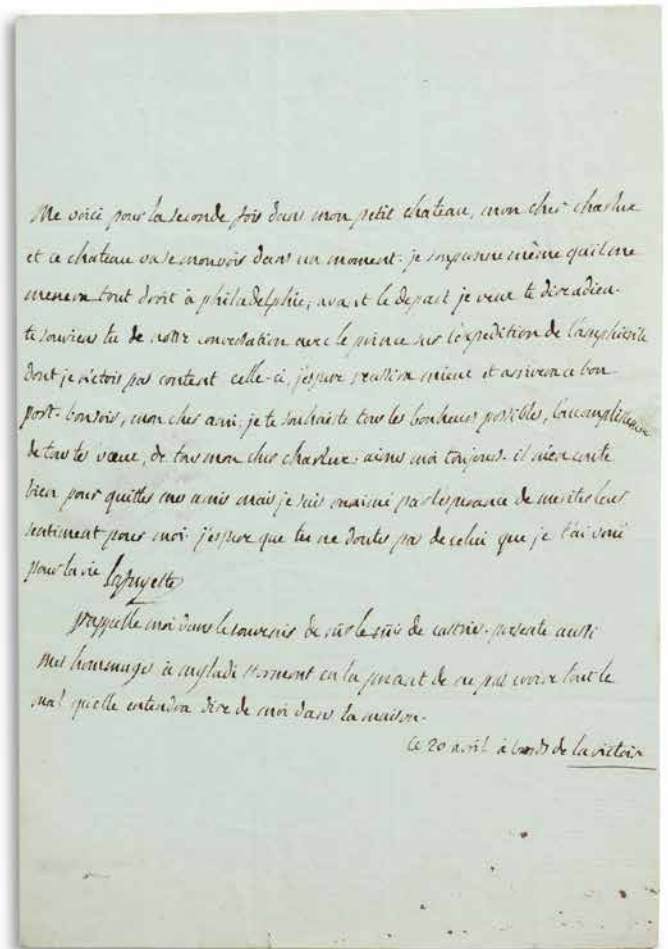 Me voici pour la seconde fois dans mon petit chateau, mon cher charlus
et ce chateau va se mouvoir dans un moment. je soupconne même qu'il me
menera tout droit à philadelphie, avant le depart je veux te dire adieu.
te souviens tu de notre conversation avec le prince sur l'expedition de l'amphitrite
dont je n'étois pas content celle-ci, j'espere reussira mieux et arrivera a bon
port. bonsoir, mon cher ami, je te souhaite tous les bonheurs possibles, l'accomplissement
de tous tes vœux, de tous mon cher charlus. aime moi toujours. il m'en coute
bien pour quitter mes amis mais je suis ranimé par l'esperance de meriter leur
sentiment pour moi. j'espere que tu ne doutes pas de celui que je t'ai voué
pour la vie Lafayette
rappelle moi dans le souvenir de de castries. presente aussi
mes hommages à mylady stormont en la priant de ne pas croire tout le
mal qu'elle entendra dire de moi dans la maison.
ce 20 avril à bords de la victoire